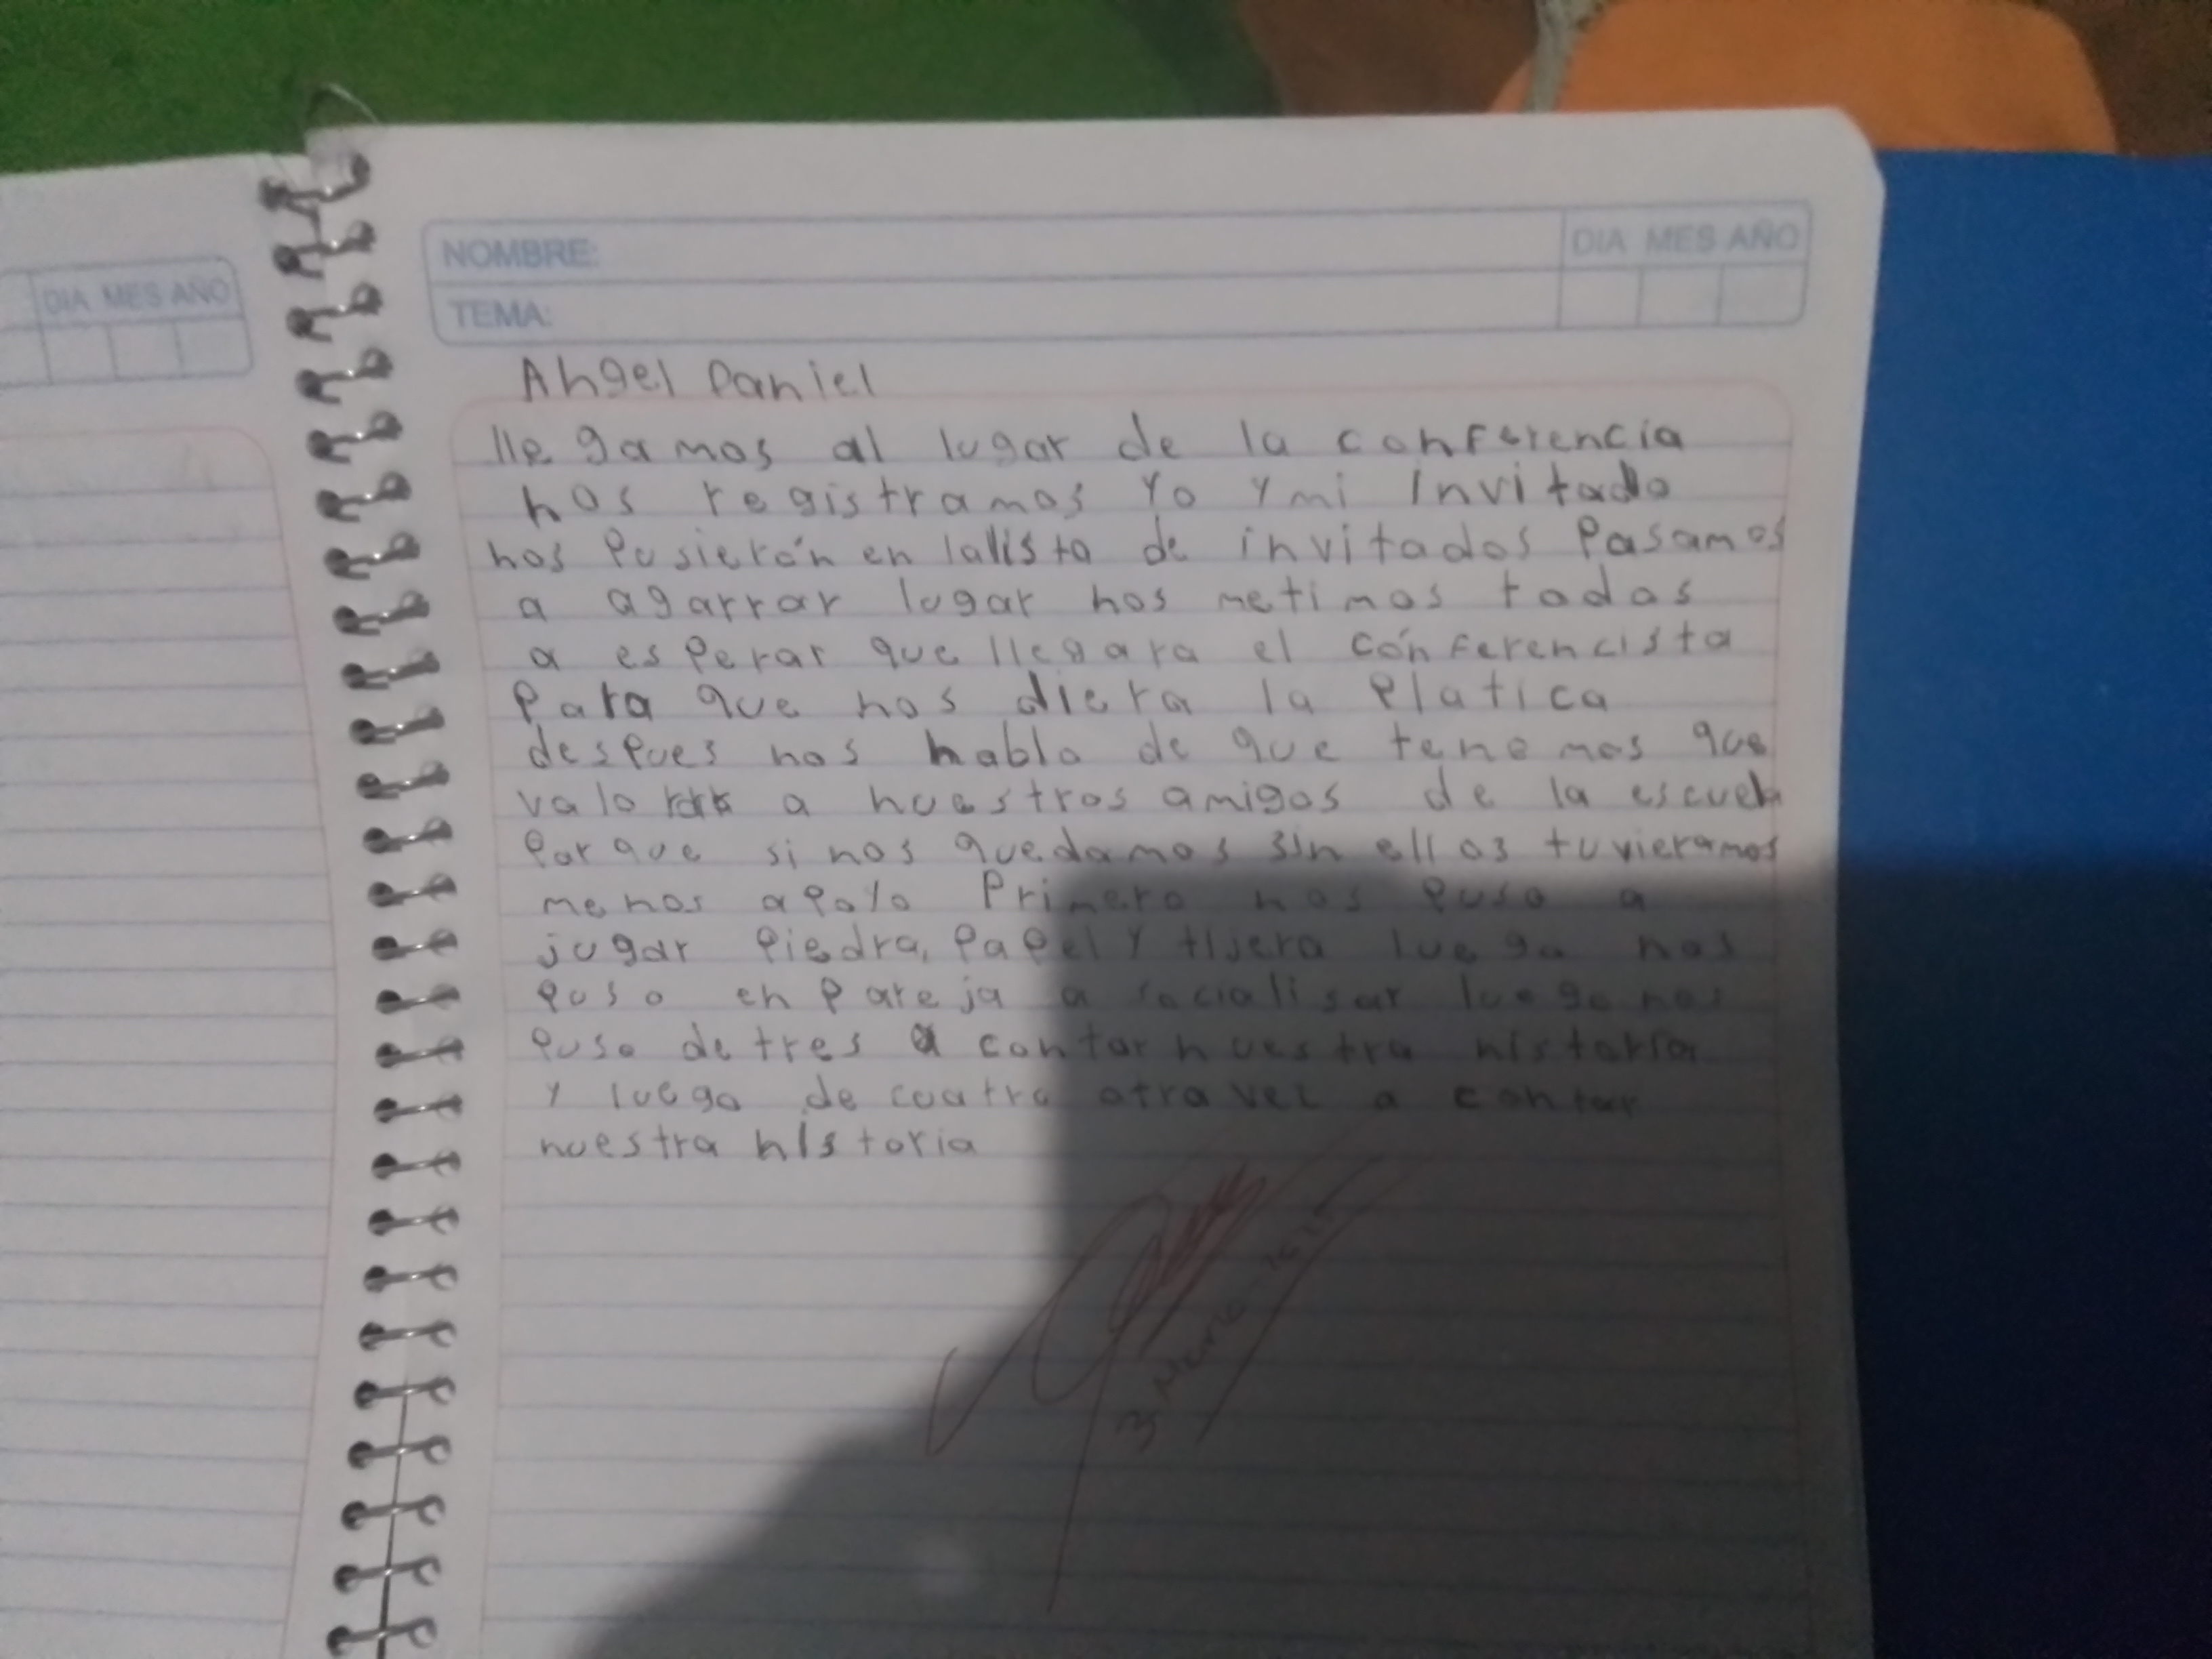 DIA MES AÑO
NOMBRE:
DIA MES AÑO
TEMA:
Angel Daniel
llegamos al lugar de la conferencia
nos registramos Yo Y mi Invitado
nos Pusierón en la lista de invitados Pasamos
a agarrar lugar nos metimos todos
a esperar que llegara el cónferencista
Para que nos diera la Platica
despues nos hablo de que tenemos que
valorar a nuestros amigos de la escuela
Porque si nos quedamos sin ellos tuvieramos
menos apoyo Primero nos Puso a
jugar Piedra, Papel Y tijera luego nos
Puso en Pareja a socialisar luego nos
Puso de tres a contar nuestra historia
Y luego de cuatro otra vez a contar
nuestra historia